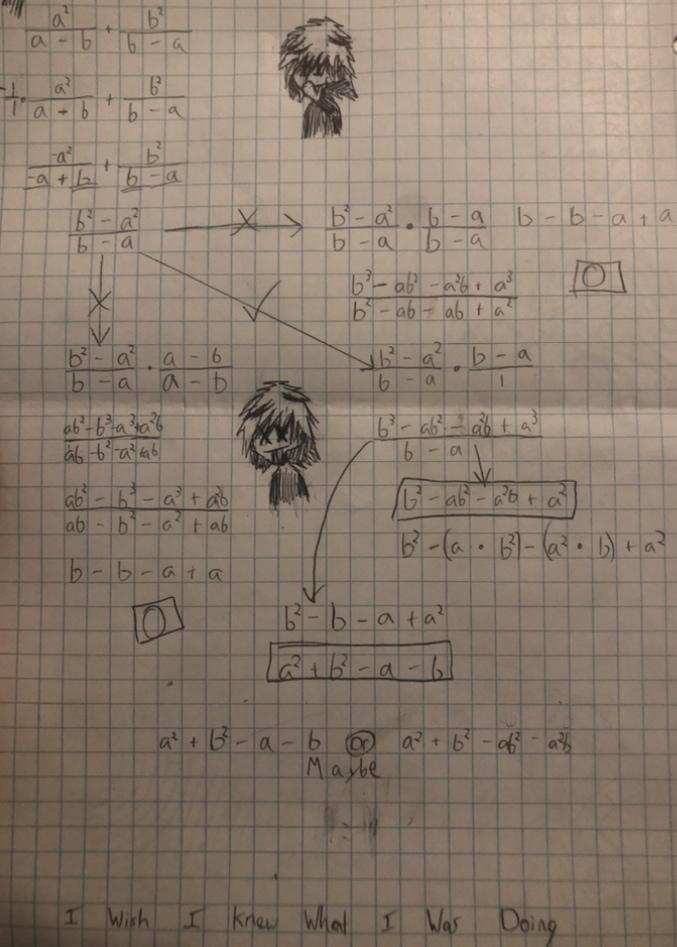 a²/(a - b) + b²/(b - a)
-1/1 · a²/(a - b) + b²/(b - a)
-a²/(-a + b) + b²/(b - a)
(b² - a²)/(b - a)
(b² - a²)/(b - a) · (b - a)/(b - a)
b - b - a + a
0
(b³ - ab² - a²b + a³)/(b² - ab - ab + a²)
(b² - a²)/(b - a) · (a - b)/(a - b)
(b² - a²)/(b - a) · (b - a)/1
(ab² - b³ - a³ + a²b)/(ab - b² - a² + ab)
(b³ - ab² - a²b + a³)/(b - a)
(ab² - b³ - a³ + a²b)/(ab - b² - a² + ab)
b² - ab² - a²b + a²
b² - (a · b²) - (a² · b) + a²
b - b - a + a
0
b² - b - a + a²
a² + b² - a - b
a² + b² - a - b or a² + b² - ab² - a²b
Maybe
I Wish I Knew What I Was Doing